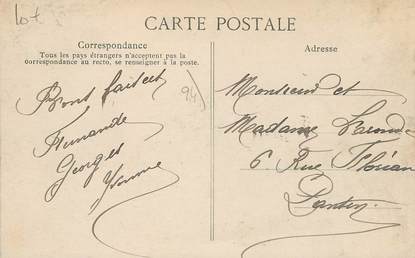 Lot
CARTE POSTALE
Correspondance
Tous les pays étrangers n'acceptent pas la
correspondance au recto, se renseigner à la poste.
Bons baisers
Fernande
Georges
Yvonne
94
Adresse
Monsieur et
Madame
6 Rue Florian
Pantin